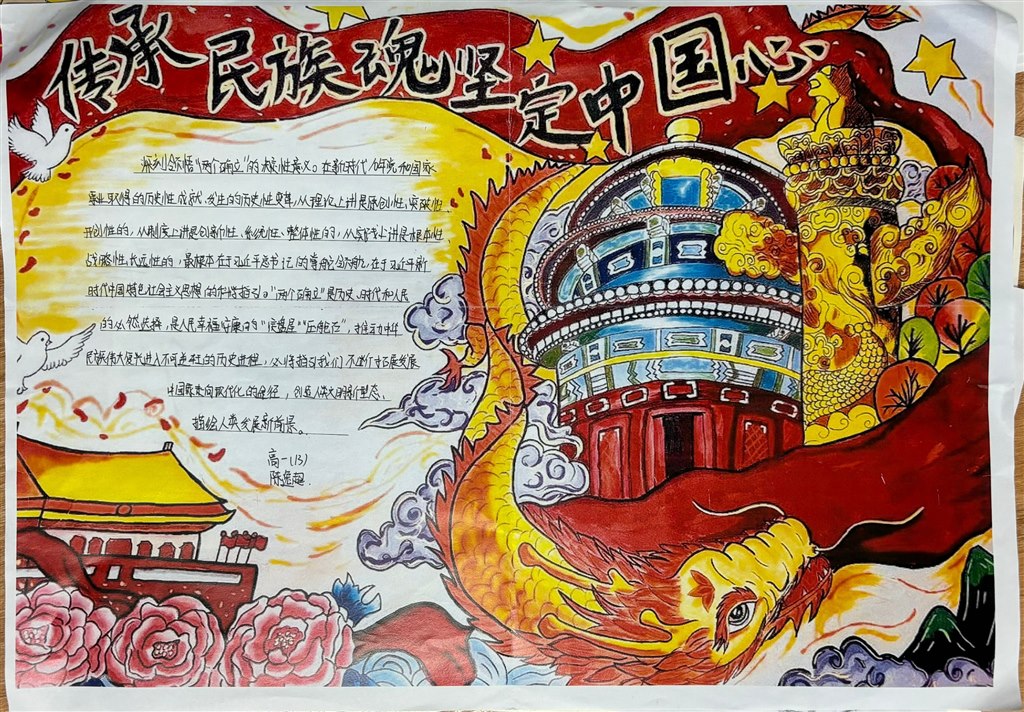 传承民族魂坚定中国心
深刻领悟“两个确立”的决定性意义。在新时代,党和国家
事业取得的历史性成就、发生的历史性变革,从理论上讲是原创性、突破性、
开创性的,从制度上讲是创新性、系统性、整体性的,从实践上讲是根本性、
战略性、长远性的,最根本在于习近平总书记的掌舵领航,在于习近平新
时代中国特色社会主义思想的科学指引。“两个确立”是历史、时代和人民
的必然选择,是人民幸福安康的“定盘星”“压舱石”,推动中华
民族伟大复兴进入不可逆转的历史进程,必将指引我们不断拓展发展
中国家走向现代化的途径,创造人类文明新形态,
描绘人类发展新前景。
高一(13)
陈逸超